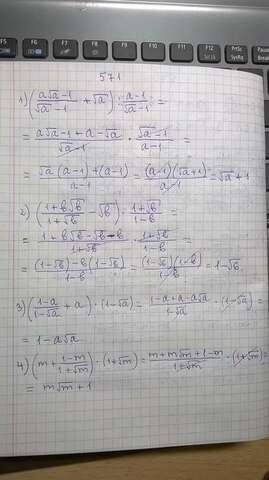 F5 F6 F7 F8 F9 F10 F11 F12 PrtSc SysRq
571
1) (a√a−1 / √a−1 + √a) : a−1 / √a−1 =
= a√a−1+a−√a / √a−1 · √a−1 / a−1 =
= √a(a−1)+(a−1) / a−1 = (a−1)(√a+1) / a−1 = √a+1
2) (1+b√b / 1+√b − √b) · 1+√b / 1−b =
= 1+b√b−√b−b / 1+√b · 1+√b / 1−b =
= (1−√b)−b(1−√b) / 1−b = (1−√b)(1−b) / 1−b = 1−√b
3) (1−a / 1−√a + a) · (1−√a) = 1−a+a−a√a / 1−√a · (1−√a) =
= 1−a√a
4) (m + 1−m / 1+√m) · (1+√m) = m+m√m+1−m / 1+√m · (1+√m) =
= m√m+1